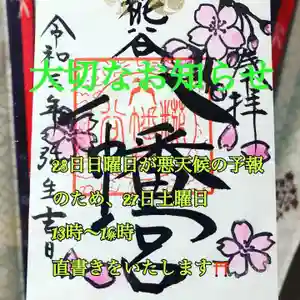 大切なお知らせ
28日日曜日が悪天候の予報
のため、27日土曜日
13時〜16時
直書きをいたします⛩
奉拝
熊谷
八幡宮
令和
年弥生吉日